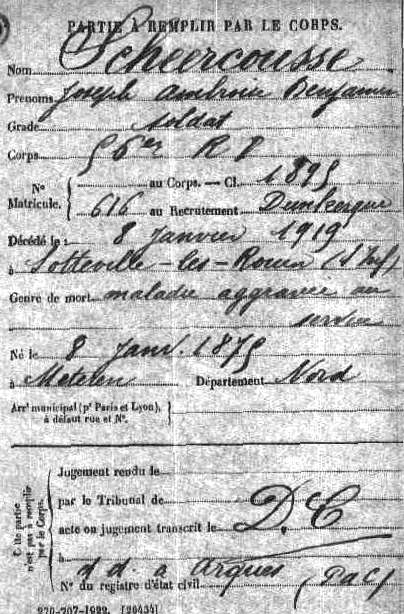 PARTIE À REMPLIR PAR LE CORPS.
Nom Scheercousse
Prénoms Joseph Ambroise Benjamin
Grade Soldat
Corps R I
N° Matricule. au Corps. — Cl. 1895
616 au Recrutement Dunkerque
Décédé le 8 janvier 1919
à Sotteville-les-Rouen (S. Inf)
Genre de mort maladie aggravée au
service
Né le 8 Janv. 1875
à Meteren Département Nord
Arrt municipal (pr Paris et Lyon),
à défaut rue et N°.
Cette partie n'est pas à remplir par le Corps.
Jugement rendu le
par le Tribunal de
acte ou jugement transcrit le D.C
à
d. d. a Arques
N° du registre d'état civil (PaC)
270-707-1922. [26434]